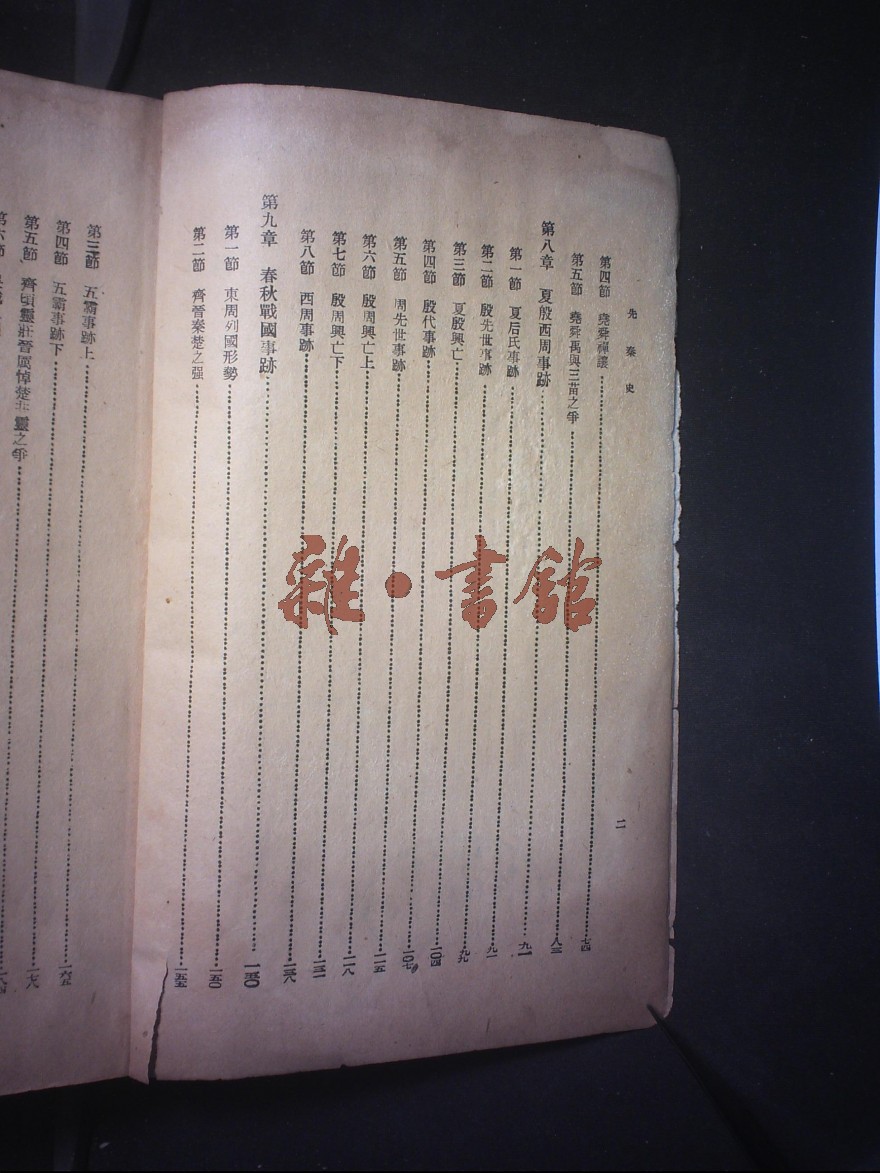 先秦史
二
第四節 堯舜禪讓……七四
第五節 堯舜禹與三苗之爭……八三
第八章 夏殷西周事跡……九一
第一節 夏后氏事跡……九一
第二節 殷先世事跡……九九
第三節 夏殷興亡……一〇四
第四節 殷代事跡……一〇七
第五節 周先世事跡……一一五
第六節 殷周興亡上……一一八
第七節 殷周興亡下……一三一
第八節 西周事跡……一三八
第九章 春秋戰國事跡……一五〇
第一節 東周列國形勢……一五〇
第二節 齊晉秦楚之强……一五五
第三節 五霸事跡上……一六五
第四節 五霸事跡下……一七八
第五節 齊頃靈莊晉厲悼楚共靈之爭……一八四
第六節
雜·書館